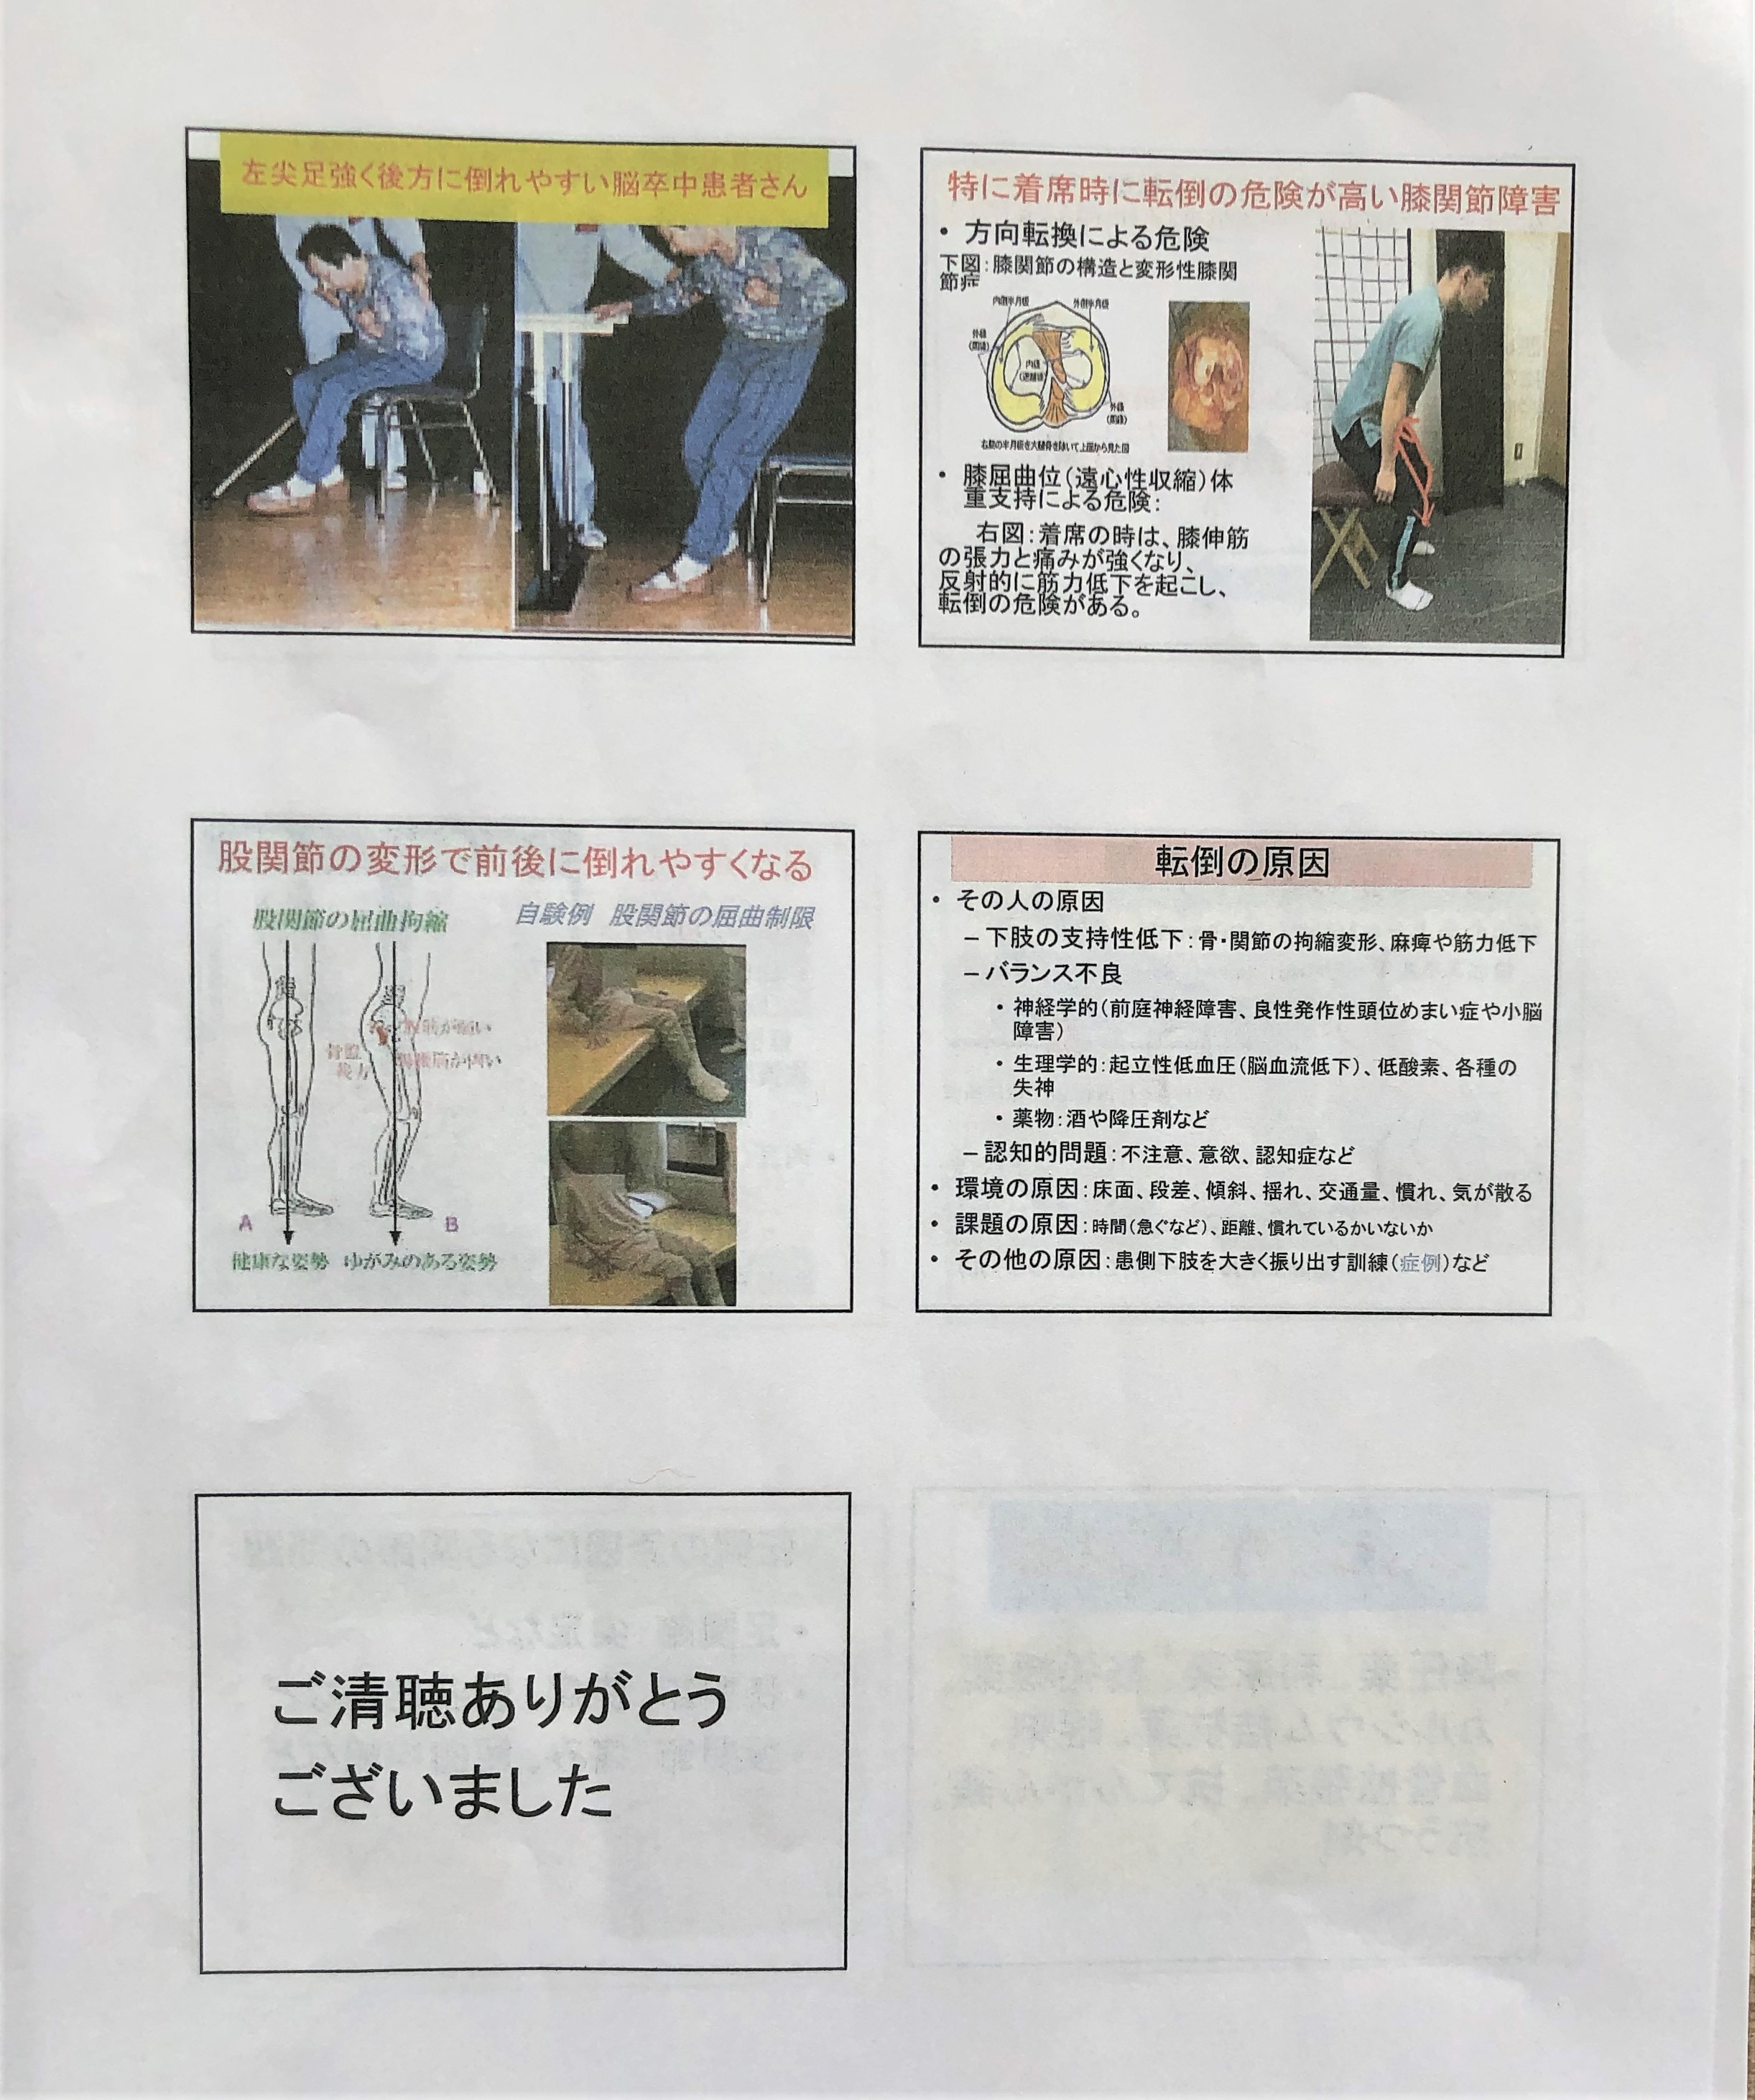 左尖足強く後方に倒れやすい脳卒中患者さん
特に着席時に転倒の危険が高い膝関節障害
• 方向転換による危険
下図:膝関節の構造と変形性膝関
節症
内側半月板
外側半月板
外縁
(周縁)
内縁
外縁
(周縁)
• 膝屈曲位(遠心性収縮)体
重支持による危険:
右図:着席の時は、膝伸筋
の張力と痛みが強くなり、
反射的に筋力低下を起こし、
転倒の危険がある。
股関節の変形で前後に倒れやすくなる
股関節の屈曲拘縮
自験例 股関節の屈曲制限
骨盤
後方
A
B
健康な姿勢 ゆがみのある姿勢
転倒の原因
• その人の原因
– 下肢の支持性低下:骨・関節の拘縮変形、麻痺や筋力低下
– バランス不良
• 神経学的(前庭神経障害、良性発作性頭位めまい症や小脳
障害)
• 生理学的:起立性低血圧(脳血流低下)、低酸素、各種の
失神
• 薬物:酒や降圧剤など
– 認知的問題:不注意、意欲、認知症など
• 環境の原因:床面、段差、傾斜、揺れ、交通量、慣れ、気が散る
• 課題の原因:時間(急ぐなど)、距離、慣れているかいないか
• その他の原因:患側下肢を大きく振り出す訓練(症例)など
ご清聴ありがとう
ございました